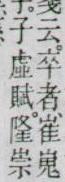 箋云卒者崔嵬
子虛賦隆崇